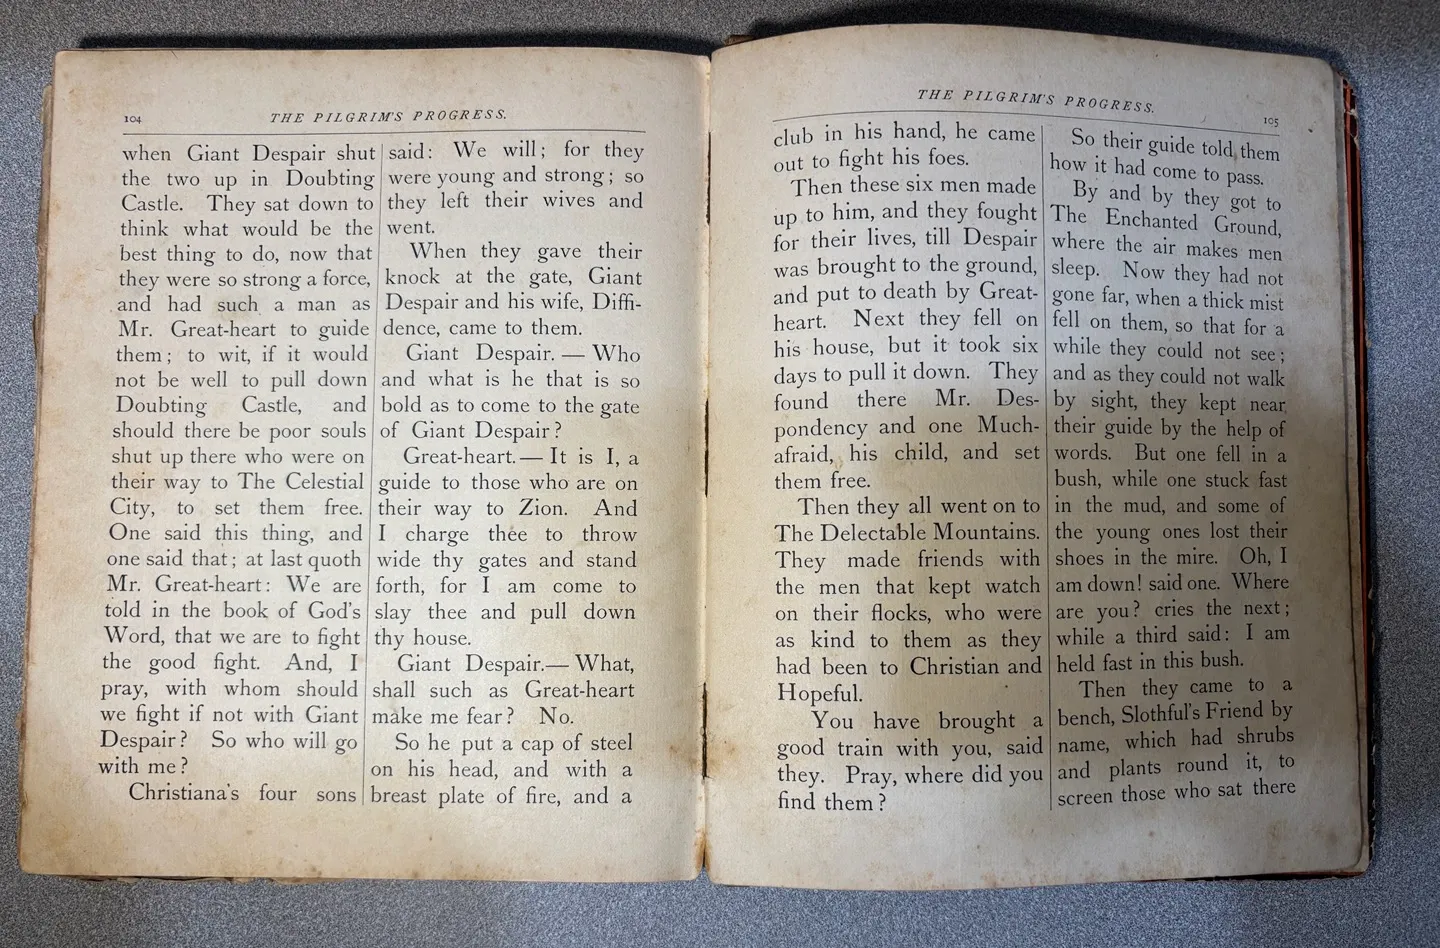 104
THE PILGRIM'S PROGRESS.
when Giant Despair shut
the two up in Doubting
Castle. They sat down to
think what would be the
best thing to do, now that
they were so strong a force,
and had such a man as
Mr. Great-heart to guide
them; to wit, if it would
not be well to pull down
Doubting Castle, and
should there be poor souls
shut up there who were on
their way to The Celestial
City, to set them free.
One said this thing, and
one said that; at last quoth
Mr. Great-heart: We are
told in the book of God's
Word, that we are to fight
the good fight. And, I
pray, with whom should
we fight if not with Giant
Despair? So who will go
with me?
Christiana's four sons
said: We will; for they
were young and strong; so
they left their wives and
went.
When they gave their
knock at the gate, Giant
Despair and his wife, Diffi-
dence, came to them.
Giant Despair. — Who
and what is he that is so
bold as to come to the gate
of Giant Despair?
Great-heart. — It is I, a
guide to those who are on
their way to Zion. And
I charge thee to throw
wide thy gates and stand
forth, for I am come to
slay thee and pull down
thy house.
Giant Despair.— What,
shall such as Great-heart
make me fear? No.
So he put a cap of steel
on his head, and with a
breast plate of fire, and a
THE PILGRIM'S PROGRESS.
105
club in his hand, he came
out to fight his foes.
Then these six men made
up to him, and they fought
for their lives, till Despair
was brought to the ground,
and put to death by Great-
heart. Next they fell on
his house, but it took six
days to pull it down. They
found there Mr. Des-
pondency and one Much-
afraid, his child, and set
them free.
Then they all went on to
The Delectable Mountains.
They made friends with
the men that kept watch
on their flocks, who were
as kind to them as they
had been to Christian and
Hopeful.
You have brought a
good train with you, said
they. Pray, where did you
find them?
So their guide told them
how it had come to pass.
By and by they got to
The Enchanted Ground,
where the air makes men
sleep. Now they had not
gone far, when a thick mist
fell on them, so that for a
while they could not see;
and as they could not walk
by sight, they kept near
their guide by the help of
words. But one fell in a
bush, while one stuck fast
in the mud, and some of
the young ones lost their
shoes in the mire. Oh, I
am down! said one. Where
are you? cries the next;
while a third said: I am
held fast in this bush.
Then they came to a
bench, Slothful's Friend by
name, which had shrubs
and plants round it, to
screen those who sat there